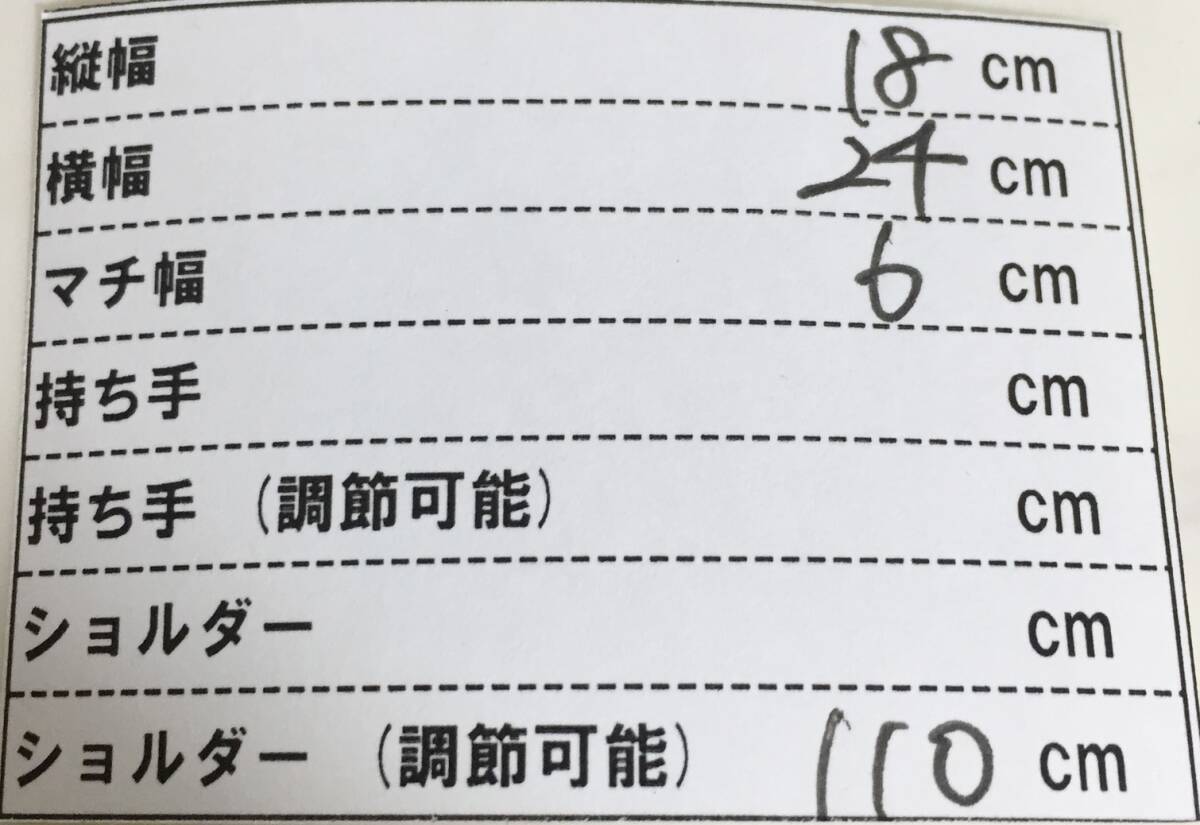 縦幅 18 cm
横幅 24 cm
マチ幅 6 cm
持ち手 cm
持ち手 (調節可能) cm
ショルダー cm
ショルダー (調節可能) 110 cm